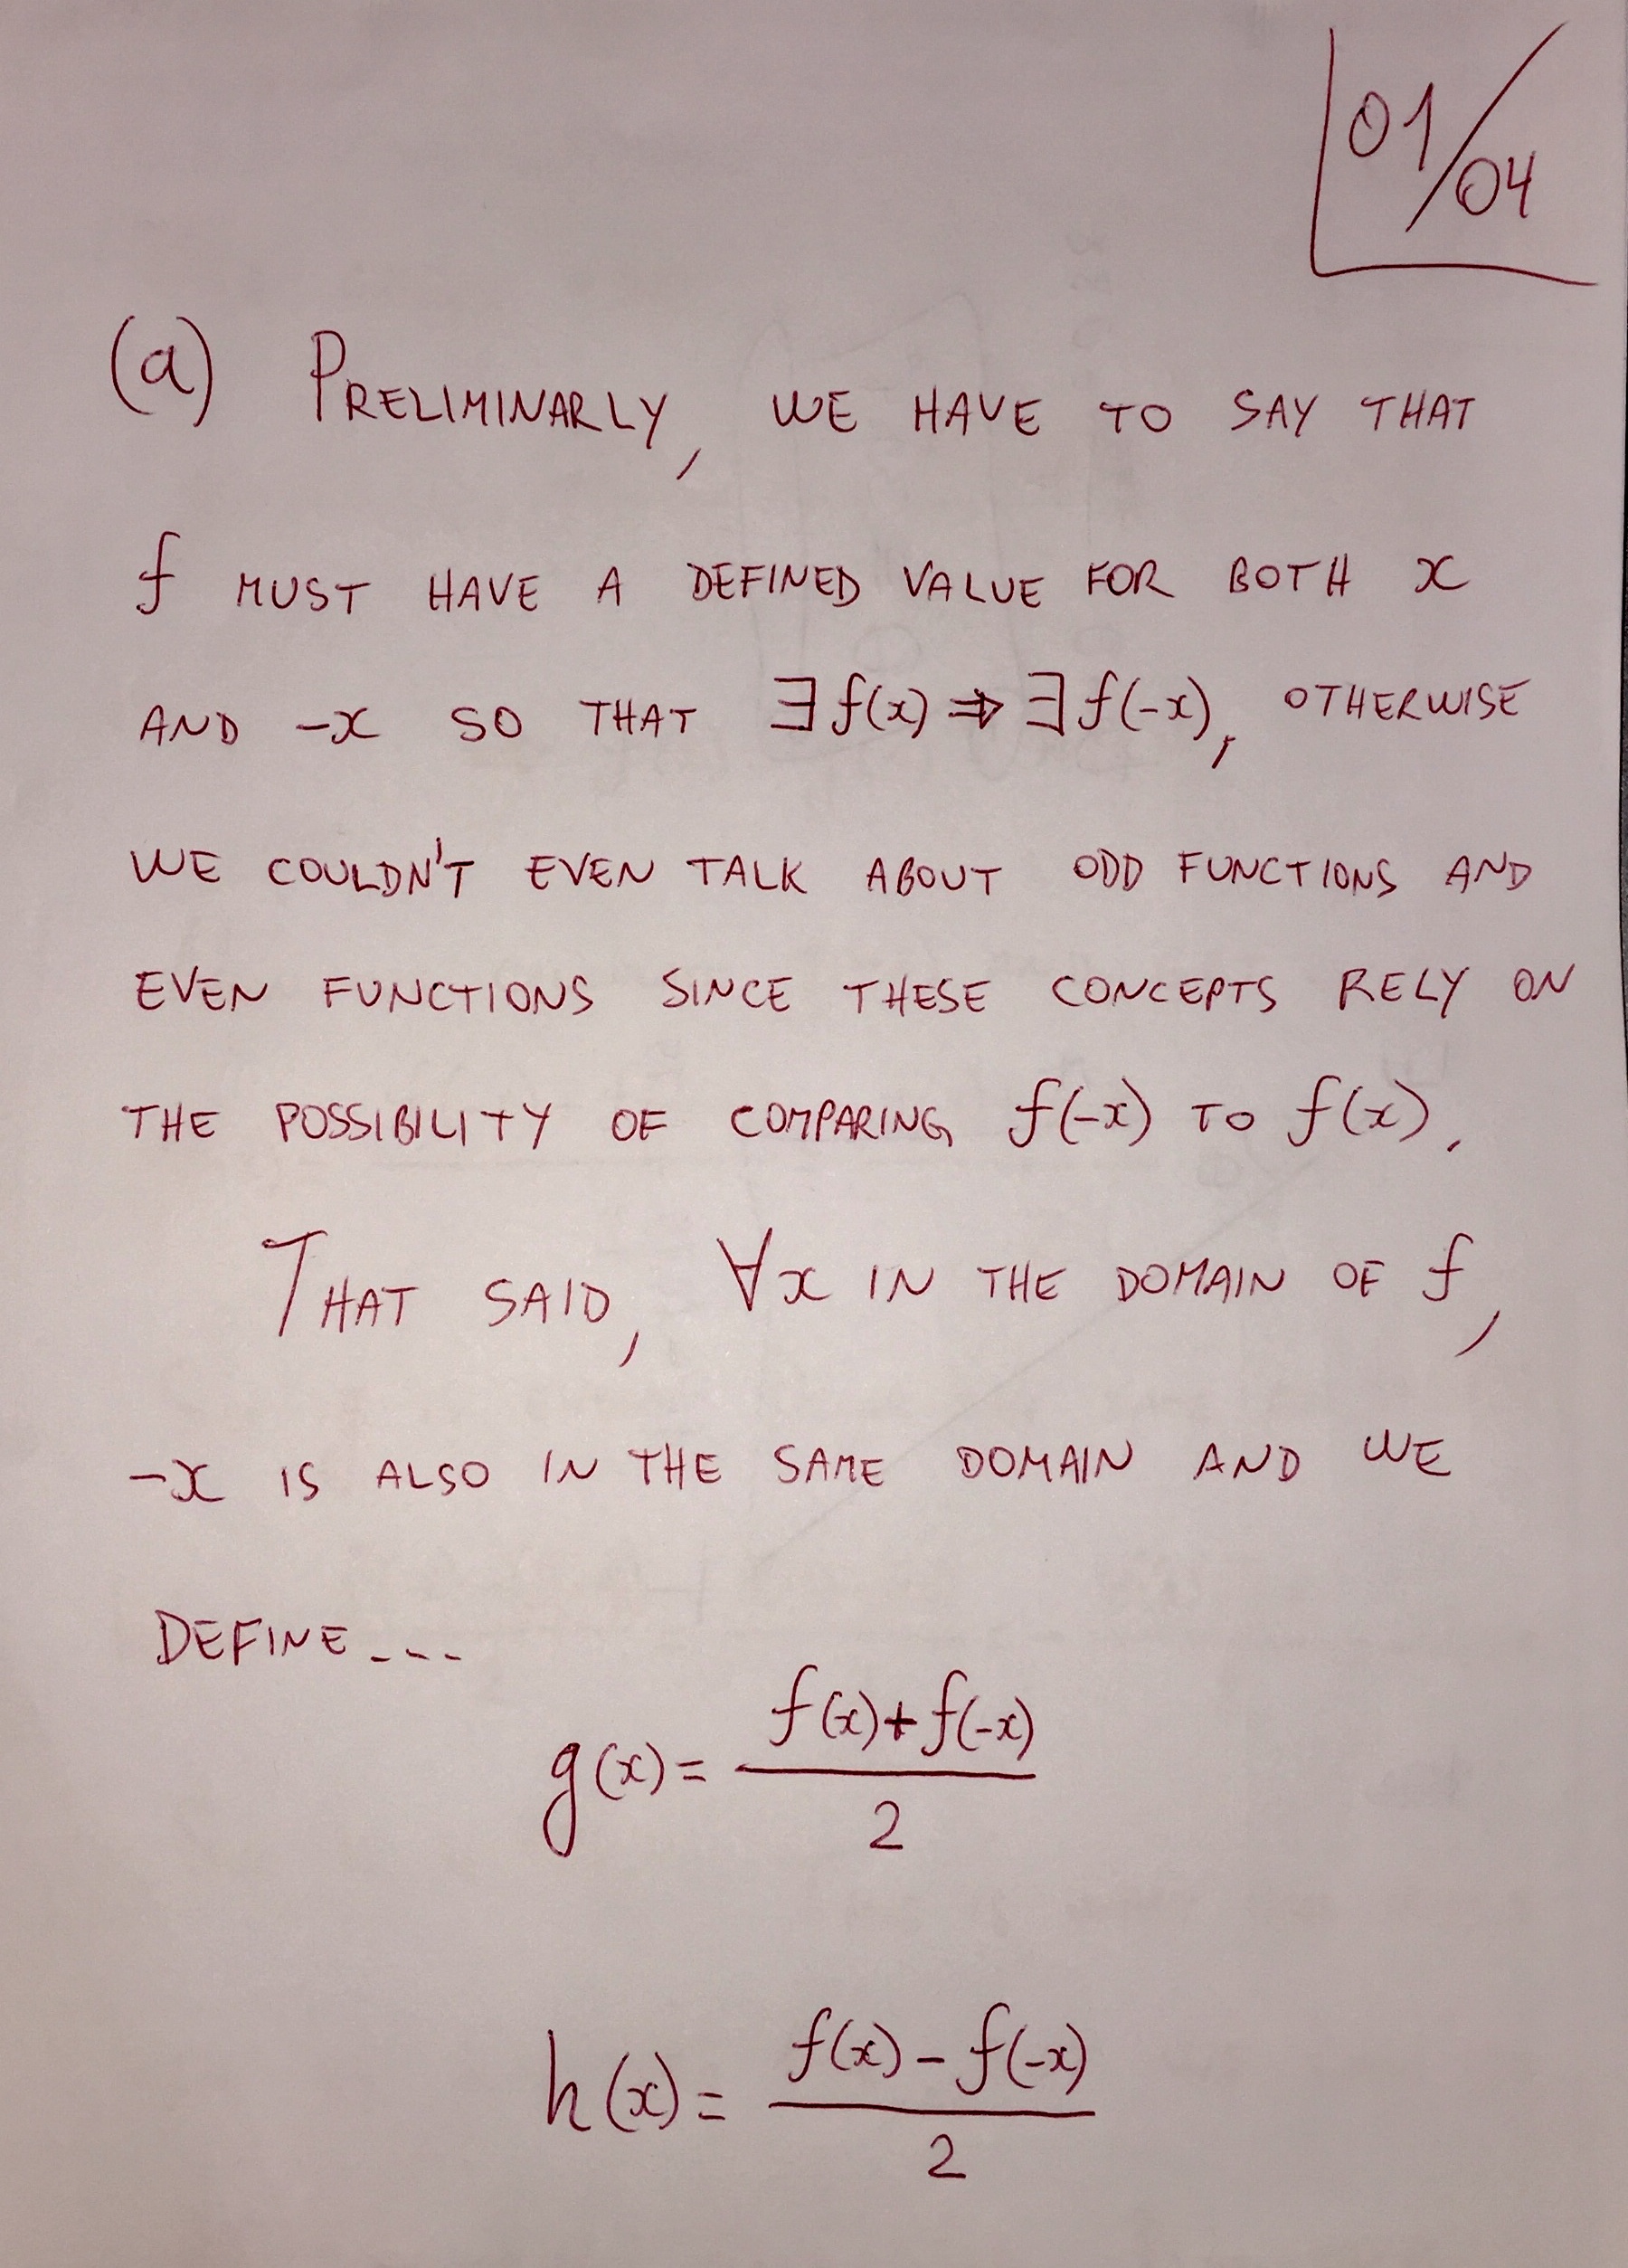 01/04
(a) PRELIMINARLY, WE HAVE TO SAY THAT
f MUST HAVE A DEFINED VALUE FOR BOTH x
AND -x SO THAT ∃f(x) ⇒ ∃f(-x), OTHERWISE
WE COULDN'T EVEN TALK ABOUT ODD FUNCTIONS AND
EVEN FUNCTIONS SINCE THESE CONCEPTS RELY ON
THE POSSIBILITY OF COMPARING f(-x) TO f(x).
THAT SAID, ∀x IN THE DOMAIN OF f,
-x IS ALSO IN THE SAME DOMAIN AND WE
DEFINE...
g(x) = (f(x)+f(-x))/2
h(x) = (f(x)-f(-x))/2